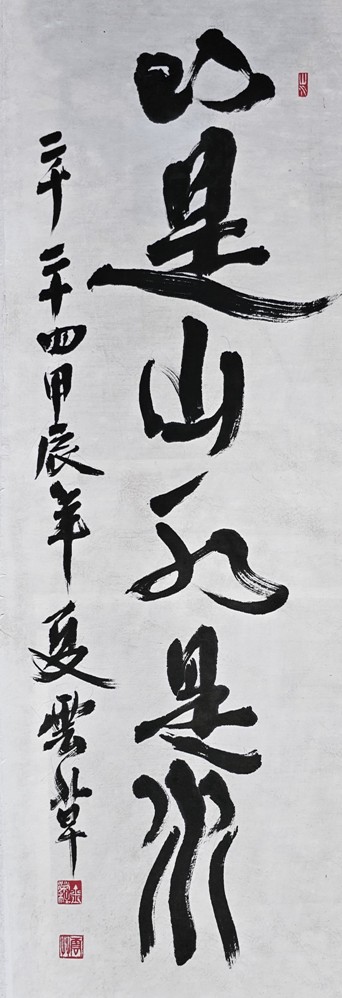 山是山水是水
二千二十四甲辰年夏雲草